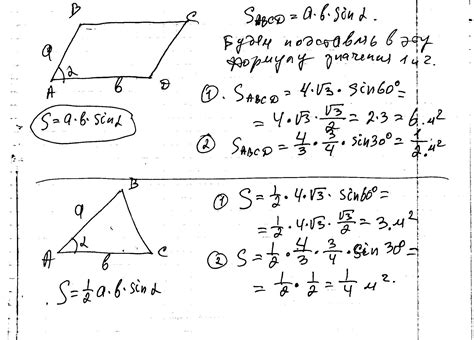 B
C
a
α
A
b
D
S=a·b·sinα
S ABCD = a·b·sinα.
Будем подставлять в эту
формулу значения 1 и 2.
①. S ABCD = 4·√3 · sin60°=
= 4·√3 · √3/2 = 2·3 = 6.м²
② S ABCD = 4/3 · 3/4 · sin30° = 1/2.м²
B
a
α
A
b
C
S=1/2 a·b·sinα
① S = 1/2 · 4·√3 · sin60°=
= 1/2 · 4·√3 · √3/2 = 3.м²
② S = 1/2 · 4/3 · 3/4 · sin 30°=
= 1/2 · 1/2 = 1/4 м².